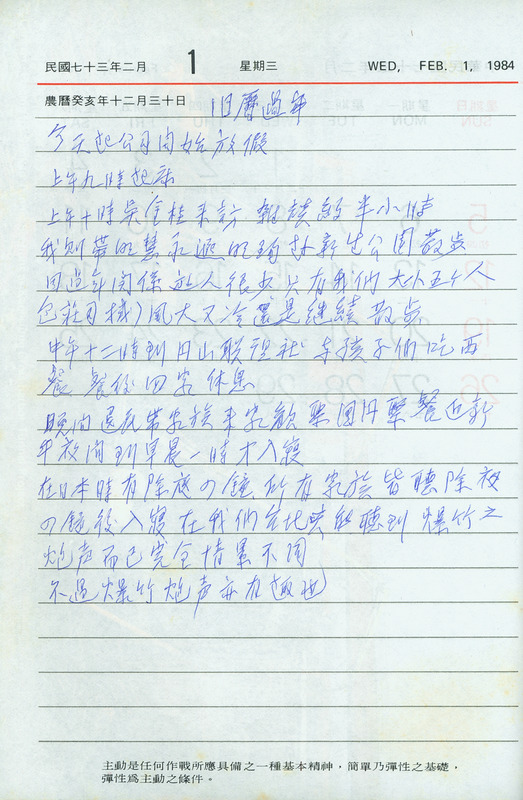 民國七十三年二月 1 星期三 WED, FEB. 1, 1984
農曆癸亥年十二月三十日 旧曆過年
今天起公司開始放假
上午九時起床
上午十時吳金桂來訪 談約半小時
我則帶明慧永 明 林新生公園散步
因過年関係 人很少 只有我們大小五个人
包 風大又冷還是継続散步
中午十二時到円山联 社 孩子們吃西
餐 餐後回家休息
晚間 家族來家歡聚団円聚餐迎新
年夜間到早晨一時才入寢
在日本時有除夜の鐘 所有家族皆聽除夜
の鐘後入寢 在我們台北 能聽到爆竹之
炮声而已完全情景不同
不過爆竹炮声亦有趣也
主動是任何作戰所應具備之一種基本精神，簡單乃彈性之基礎，
彈性爲主動之條件。